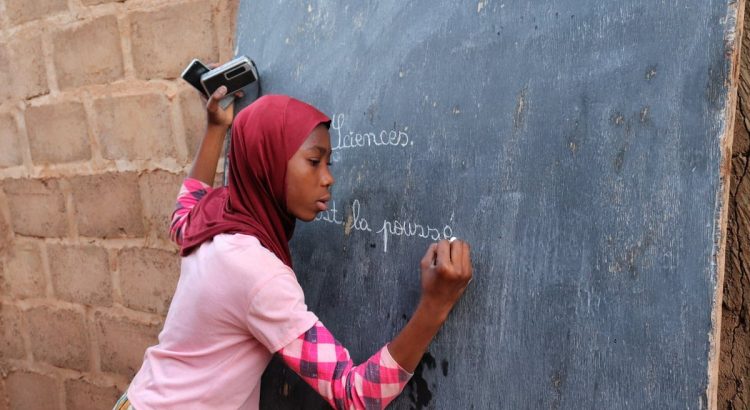 Sciences.
est la poussé